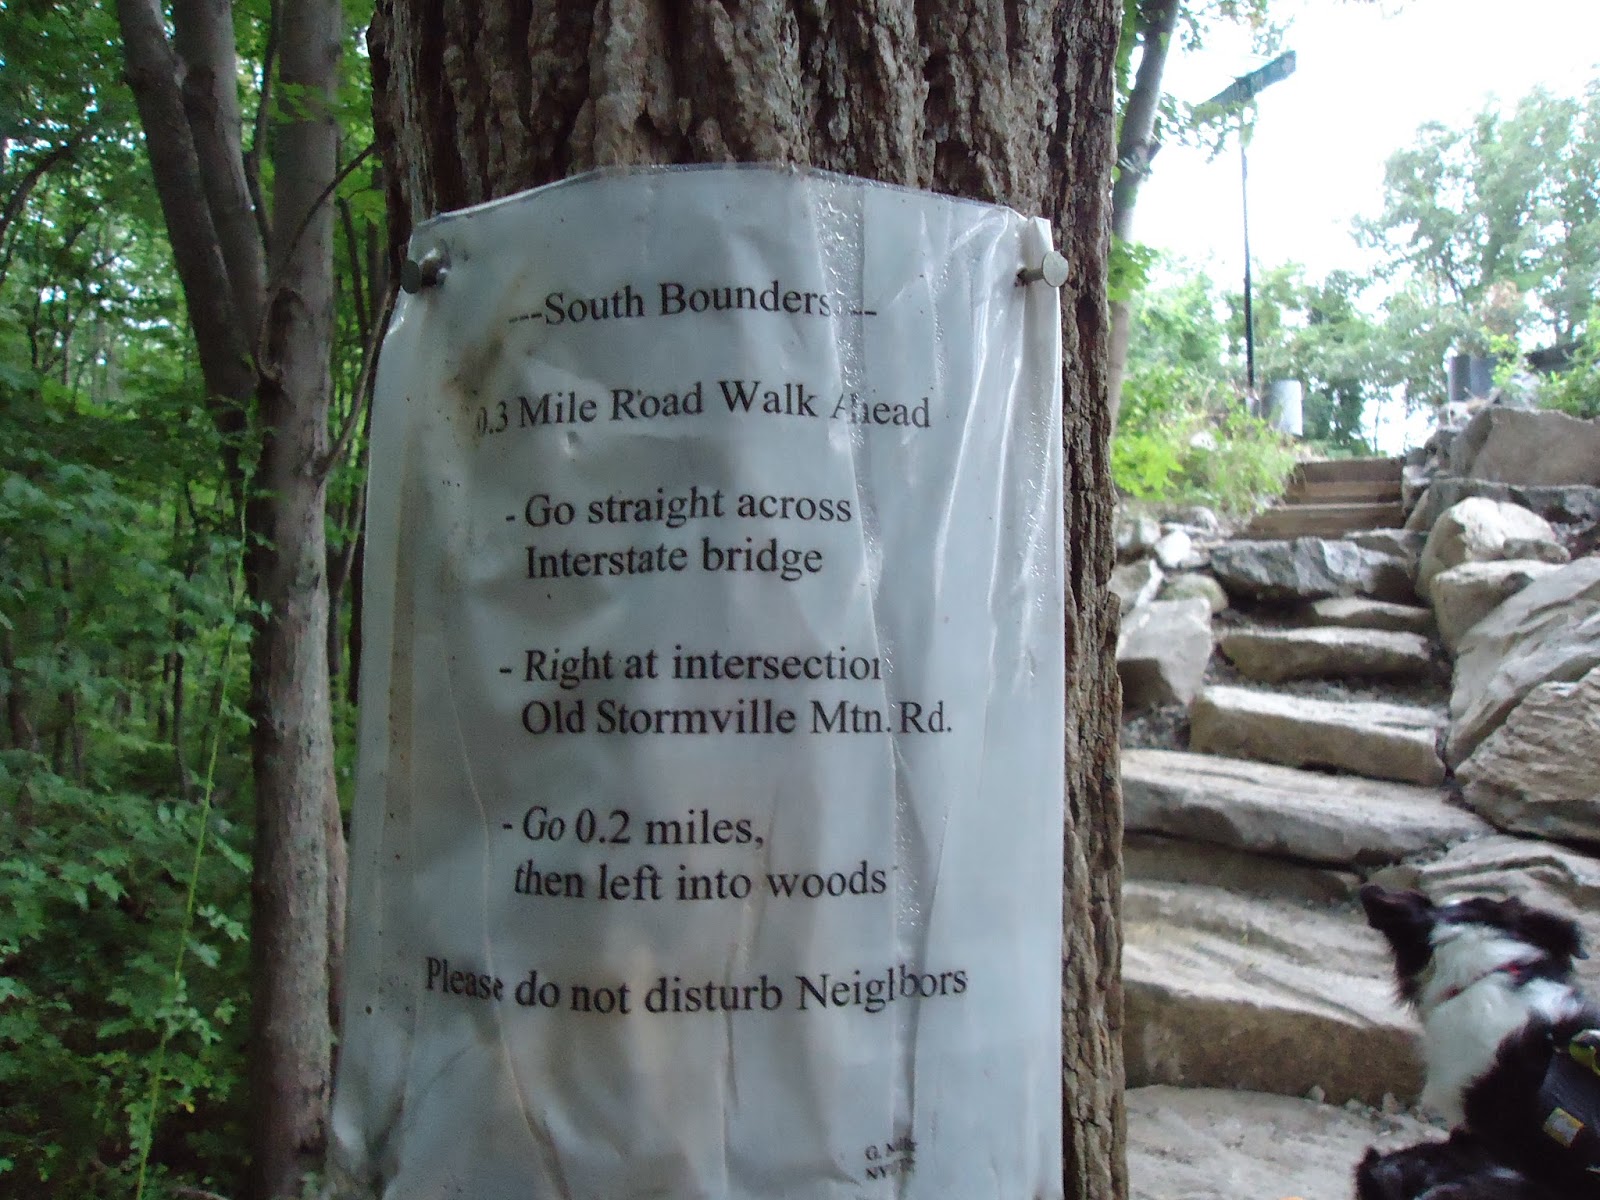 ---South Bounders---
0.3 Mile Road Walk Ahead
- Go straight across
Interstate bridge
- Right at intersection
Old Stormville Mtn. Rd.
- Go 0.2 miles,
then left into woods
Please do not disturb Neighbors
G.